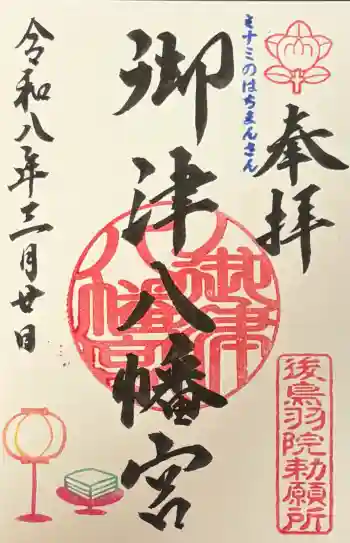 奉拝
ミナミのはちまんさん
御津八幡宮
御津八幡宮
後鳥羽院勅願所
令和八年三月廿日